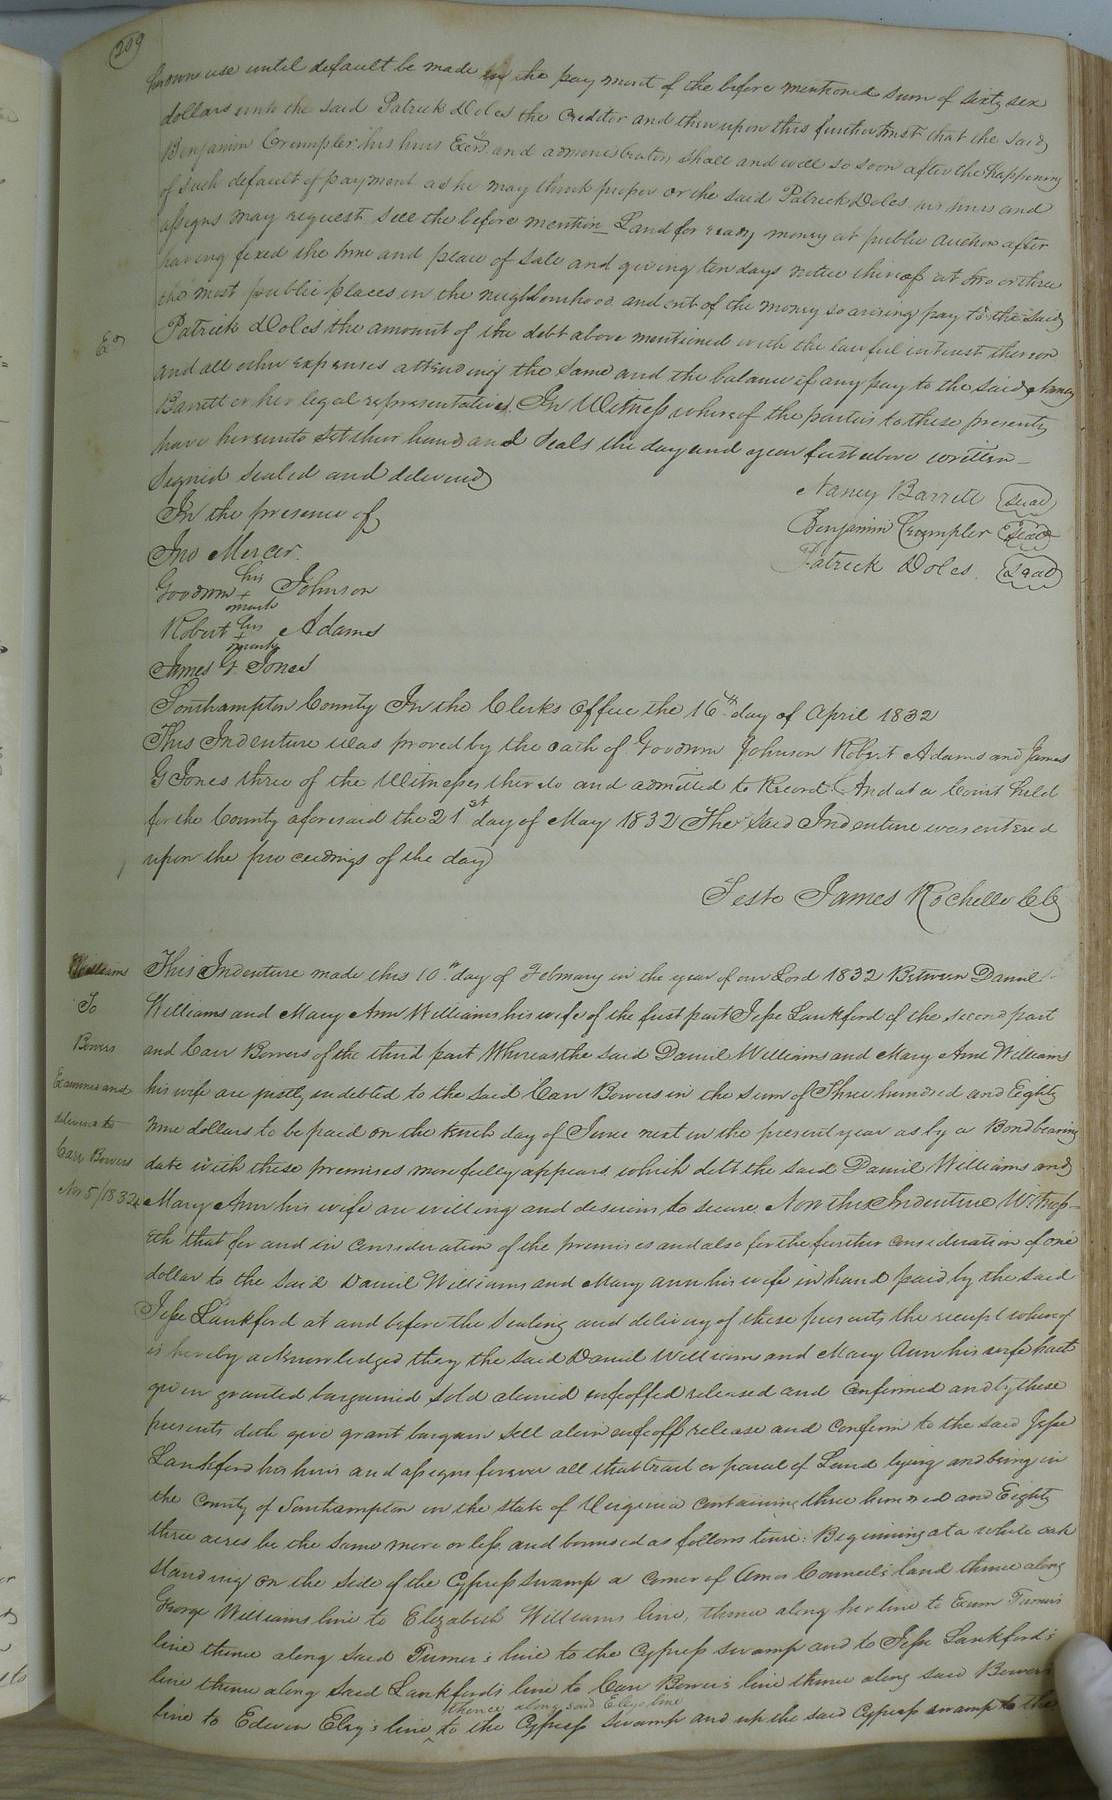 209
her own use until default be made in the payment of the before mentioned sum of sixty six
dollars unto the said Patrick Doles the Creditor and then upon this further trust that the said
Benjamin Crumpler his heirs Exrs. and administrators shall and will so soon after the happening
of such default of payment as he may think proper or the said Patrick Doles his heirs and
assigns may request sell the before mention Land for ready money at public auction after
having fixed the time and place of sale and giving ten days notice thereof at two or three
the most public places in the neighbourhood and out of the money so arising pay to the said
Patrick Doles the amount of the debt above mentioned with the lawful interest thereon
Ex
and all other expenses attending the same and the balance if any pay to the said Nancy
Barrett or her legal representatives. In Witness whereof the parties to these presents
have hereunto set their hands and Seals the day and year first above written
Signed sealed and delivered
In the presence of
Nancy Barrett Seal
Benjamin Crumpler Seal
Patrick Doles. Seal
Jno Mercer.
Goodwin his + mark Johnson
Robert his + mark Adams
James G. Jones
Southampton County In the Clerks Office the 16th day of April 1832
This Indenture was proved by the oath of Goodwin Johnson Robert Adams and James
G Jones three of the Witnesses thereto and admitted to Record. And at a Court held
for the County aforesaid the 21st day of May 1832 The said Indenture was entered
upon the proceedings of the day
Teste James Rochelle CC
Williams
To
Bowers
Examined and
delivered to
Carr Bowers
Nov 5/1832
This Indenture made this 10th day of February in the year of our Lord 1832 Between Daniel
Williams and Mary Ann Williams his wife of the first part Jesse Lankford of the second part
and Carr Bowers of the third part Whereas the said Daniel Williams and Mary Ann Williams
his wife are justly indebted to the said Carr Bowers in the sum of Three hundred and Eighty
nine dollars to be paid on the tenth day of June next in the present year as by a Bond bearing
date with these premises more fully appears which debt the said Daniel Williams and
Mary Ann his wife are willing and desirous to secure Now this Indenture Witness-
eth that for and in consideration of the premises and also for the further consideration of one
dollar to the said Daniel Williams and Mary ann his wife in hand paid by the said
Jesse Lankford at and before the Sealing and delivery of these presents the receipt whereof
is hereby acknowledged they the said Daniel Williams and Mary Ann his wife hath
given granted bargained sold aliened enfeoffed released and Confirmed and by these
presents doth give grant bargain sell alien enfeoff release and Confirm to the said Jesse
Lankford his heirs and assigns forever all that tract or parcel of Land lying and being in
the County of Southampton in the State of Virginia Containing three hundred and Eighty
three acres be the same more or less and bounded as follows towit: Beginning at a white oak
standing on the side of the Cypress swamp a corner of Amos Council's land thence along
George Williams line to Elizabeth Williams line, thence along her line to Turner's
line thence along said Turner's line to the Cypress swamp and to Jesse Lankford's
line thence along said Lankford's line to Carr Bowers line thence along said Bowers
thence along said Eley's line
line to Edwin Eley's line ^ to the Cypress swamp and up the said Cypress swamp to the